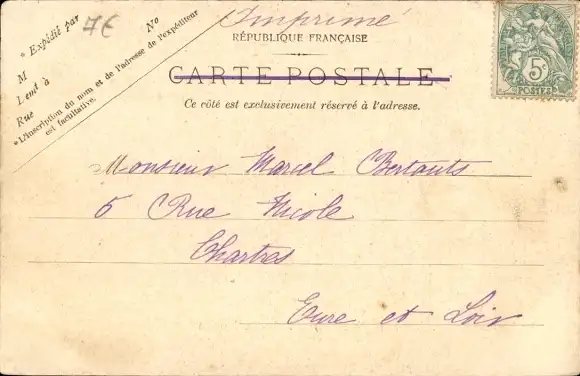 Imprimé
7€
RÉPUBLIQUE FRANÇAISE
CARTE POSTALE
Ce côté est exclusivement réservé à l'adresse.
* Expédié par
M
No
Demt à
Rue
* L'inscription du nom et de l'adresse de l'expéditeur
est facultative.
5c
POSTES
Monsieur Marcel Bertauts
5 Rue Nicole
Chartres
Eure et Loir